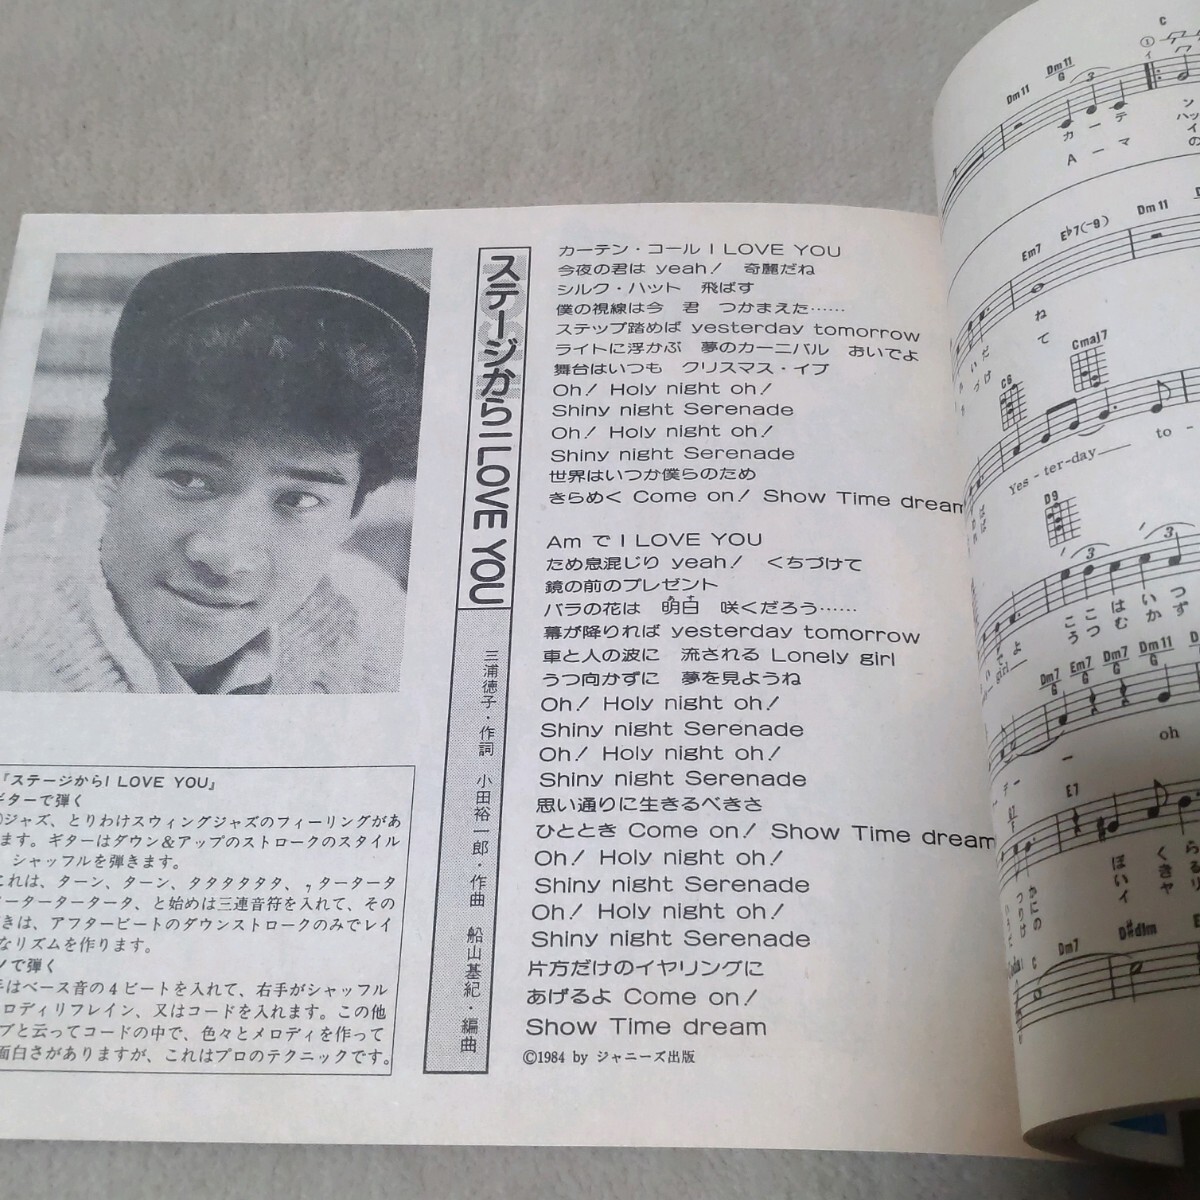 ステージから I LOVE YOU
三浦徳子・作詞 小田裕一郎・作曲 船山基紀・編曲
カーテン・コール I LOVE YOU
今夜の君は yeah! 奇麗だね
シルク・ハット 飛ばす
僕の視線は今 君 つかまえた……
ステップ踏めば yesterday tomorrow
ライトに浮かぶ 夢のカーニバル おいでよ
舞台はいつも クリスマス・イブ
Oh! Holy night oh!
Shiny night Serenade
Oh! Holy night oh!
Shiny night Serenade
世界はいつか僕らのため
きらめく Come on! Show Time dream
Am で I LOVE YOU
ため息混じり yeah! くちづけて
鏡の前のプレゼント
バラの花は 明白 咲くだろう……
幕が降りれば yesterday tomorrow
車と人の波に 流される Lonely girl
うつ向かずに 夢を見ようね
Oh! Holy night oh!
Shiny night Serenade
Oh! Holy night oh!
Shiny night Serenade
思い通りに生きるべきさ
ひととき Come on! Show Time dream
Oh! Holy night oh!
Shiny night Serenade
Oh! Holy night oh!
Shiny night Serenade
片方だけのイヤリングに
あげるよ Come on!
Show Time dream
©1984 by ジャニーズ出版
『ステージからI LOVE YOU』
ギターで弾く
ジャズ、とりわけスウィングジャズのフィーリングがあ
ます。ギターはダウン&アップのストロークのスタイル
シャッフルを弾きます。
これは、ターン、ターン、タタタタタタ、,ターータータ
ーターターーターータ、と始めは三連音符を入れて、その
きは、アフタービートのダウンストロークのみでレイ
なリズムを作ります。
ノで弾く
手はベース音の4ビートを入れて、右手がシャッフル
ロディリフレイン、又はコードを入れます。この他
ブと云ってコードの中で、色々とメロディを作って
面白さがありますが、これはプロのテクニックです。
Dm11 Dm11/G C
カーテ
Aーマ
Em7 E♭7(-9) Dm11
C6 Cmaj7
Yes-ter-day to-
D9
Dm7/G Em7/G Dm7/G Dm11/G
oh
E7
Dm7